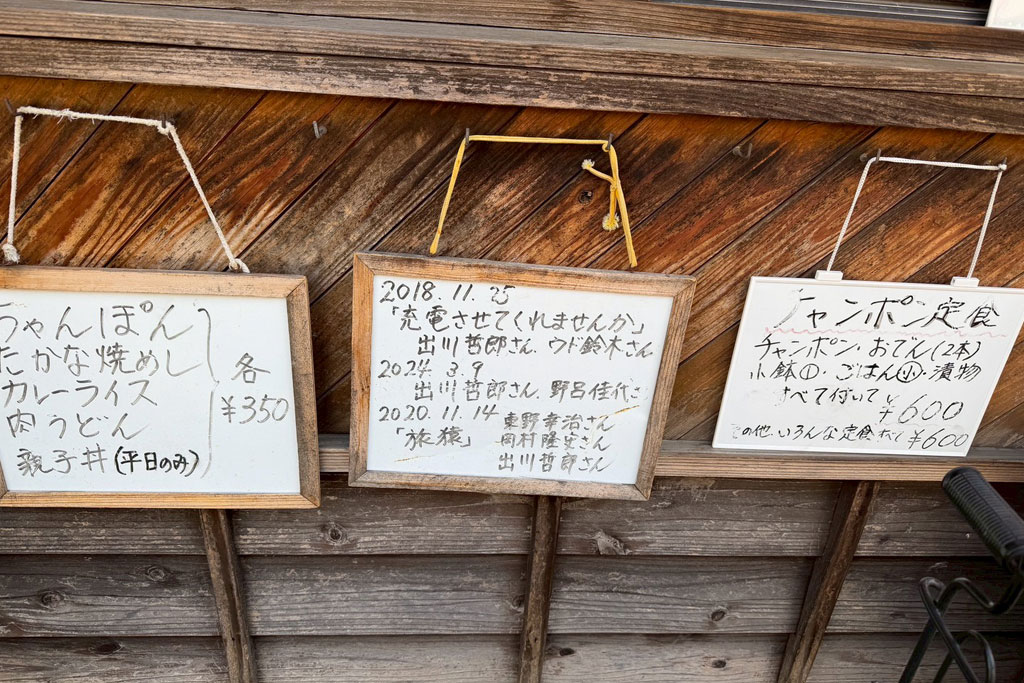 ちゃんぽん
たかな焼めし
カレーライス
肉うどん
親子丼(平日のみ)
各
¥350
2018.11.25
「充電させてくれませんか」
出川哲郎さん.ウド鈴木さん
2024.3.9
出川哲郎さん.野呂佳代さん
2020.11.14
「旅猿」
東野幸治さん
岡村隆史さん
出川哲郎さん
チャンポン定食
チャンポン・おでん(2本)
小鉢①・ごはん小・漬物
すべて付いて
¥600
その他.いろんな定食すべて¥600